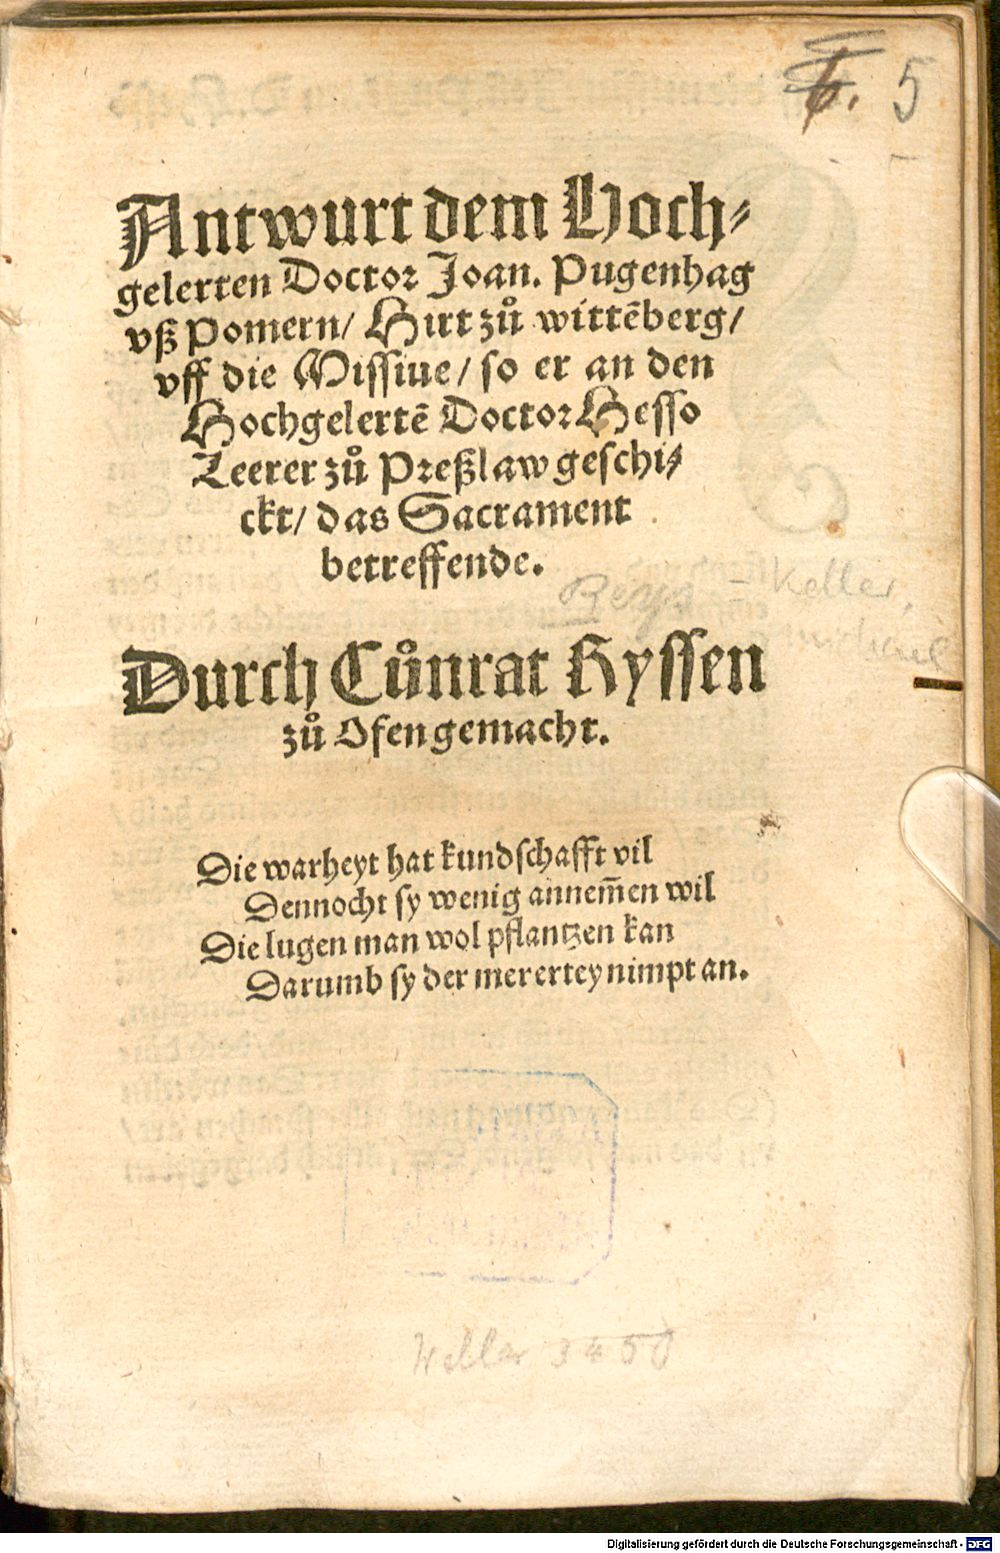 6. 5
Antwurt dem Hoch⸗
gelerten Doctor Joan. Pugenhag
vß Pomern/ Hirt zů wittēberg/
vff die Missiue/ so er an den
Hochgelertē Doctor Hesso
Leerer zů Preßlaw geschi⸗
ckt/ das Sacrament
betreffende.
Reys – Keller,
Michael
Durch Cůnrat Ryssen
zů Ofen gemacht.
Die warheyt hat kundschafft vil
Dennocht sy wenig annem̄en wil
Die lugen man wol pflantzen kan
Darumb sy der merer tey nimpt an.
Weller 3450
Digitalisierung gefördert durch die Deutsche Forschungsgemeinschaft - DFG